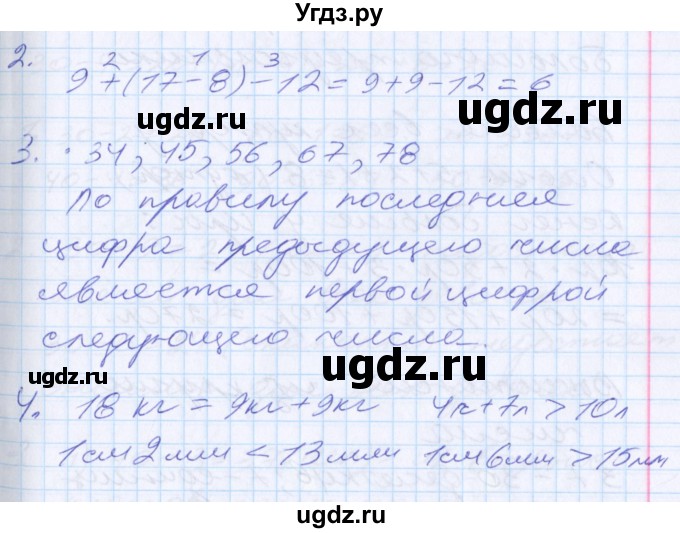 Угдз.ру
2.
2 1 3
9+(17-8)-12=9+9-12=6
ugdz.ru ugdz.ru
3. · 34, 45, 56, 67, 78
По правилу последняя
цифра предыдущего числа
ugdz.ru
является первой цифрой
следующего числа.
ugdz.ru
4. 18 кг = 9кг+9кг 4л+7л > 10л
1см2мм < 13мм 1см6мм > 15мм
ugdz.ru ugdz.ru
ugdz.ru